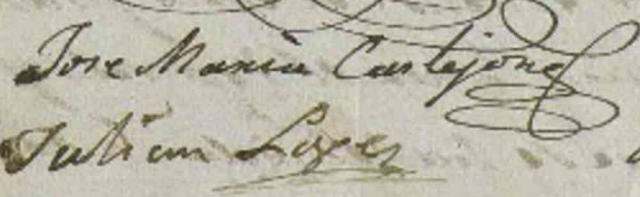 Jose Maria Castejon
Julian Lopez